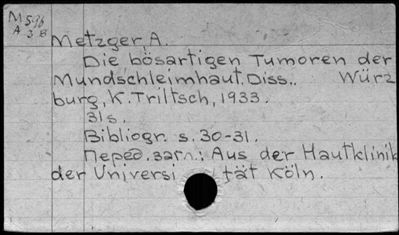 M596
A38
Metzger, A.
Die bösartigen Tumoren der
Mundschleimhaut. Diss.. Würz
burg, K. Triltsch, 1933.
31 s.
Bibliogr. s. 30-31.
Перед. загл.: Aus der Hautklinik
der Universi tät Köln.